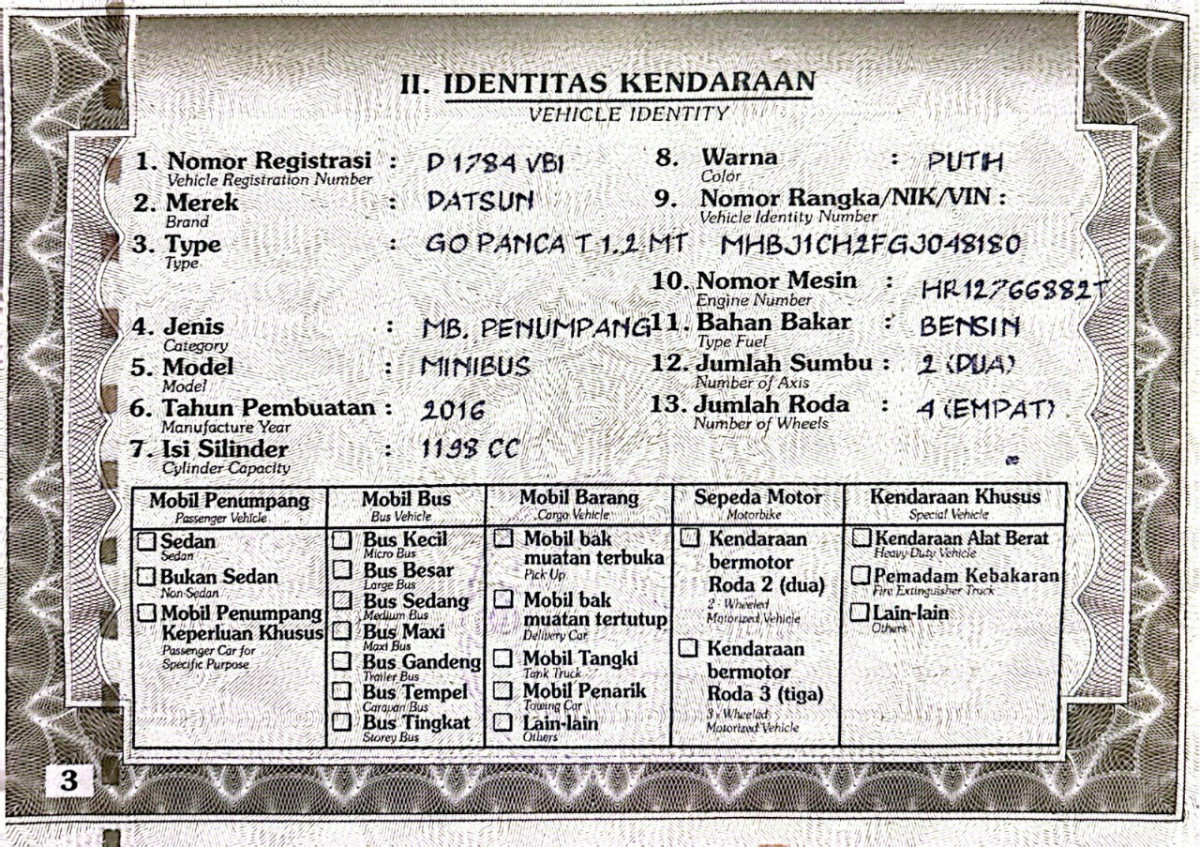 II. IDENTITAS KENDARAAN
VEHICLE IDENTITY
1. Nomor Registrasi : D 1784 VBI
Vehicle Registration Number
2. Merek : DATSUN
Brand
3. Type : GO PANCA T 1.2 MT
Type
4. Jenis : MB. PENUMPANG
Category
5. Model : MINIBUS
Model
6. Tahun Pembuatan : 2016
Manufacture Year
7. Isi Silinder : 1198 CC
Cylinder Capacity
8. Warna : PUTIH
Color
9. Nomor Rangka/NIK/VIN :
Vehicle Identity Number
MHBJ1CH2FGJ048180
10. Nomor Mesin : HR12766882T
Engine Number
11. Bahan Bakar : BENSIN
Type Fuel
12. Jumlah Sumbu : 2 (DUA)
Number of Axis
13. Jumlah Roda : 4 (EMPAT)
Number of Wheels
Mobil Penumpang
Passenger Vehicle
Sedan
Sedan
Bukan Sedan
Non-Sedan
Mobil Penumpang
Keperluan Khusus
Passenger Car for
Specific Purpose
Mobil Bus
Bus Vehicle
Bus Kecil
Micro Bus
Bus Besar
Large Bus
Bus Sedang
Medium Bus
Bus Maxi
Maxi Bus
Bus Gandeng
Trailer Bus
Bus Tempel
Caravan Bus
Bus Tingkat
Storey Bus
Mobil Barang
Cargo Vehicle
Mobil bak
muatan terbuka
Pick Up
Mobil bak
muatan tertutup
Delivery Car
Mobil Tangki
Tank Truck
Mobil Penarik
Towing Car
Lain-lain
Others
Sepeda Motor
Motorbike
Kendaraan
bermotor
Roda 2 (dua)
2 - Wheeled
Motorized Vehicle
Kendaraan
bermotor
Roda 3 (tiga)
3 - Wheeled
Motorized Vehicle
Kendaraan Khusus
Special Vehicle
Kendaraan Alat Berat
Heavy-Duty Vehicle
Pemadam Kebakaran
Fire Extinguisher Truck
Lain-lain
Others
3